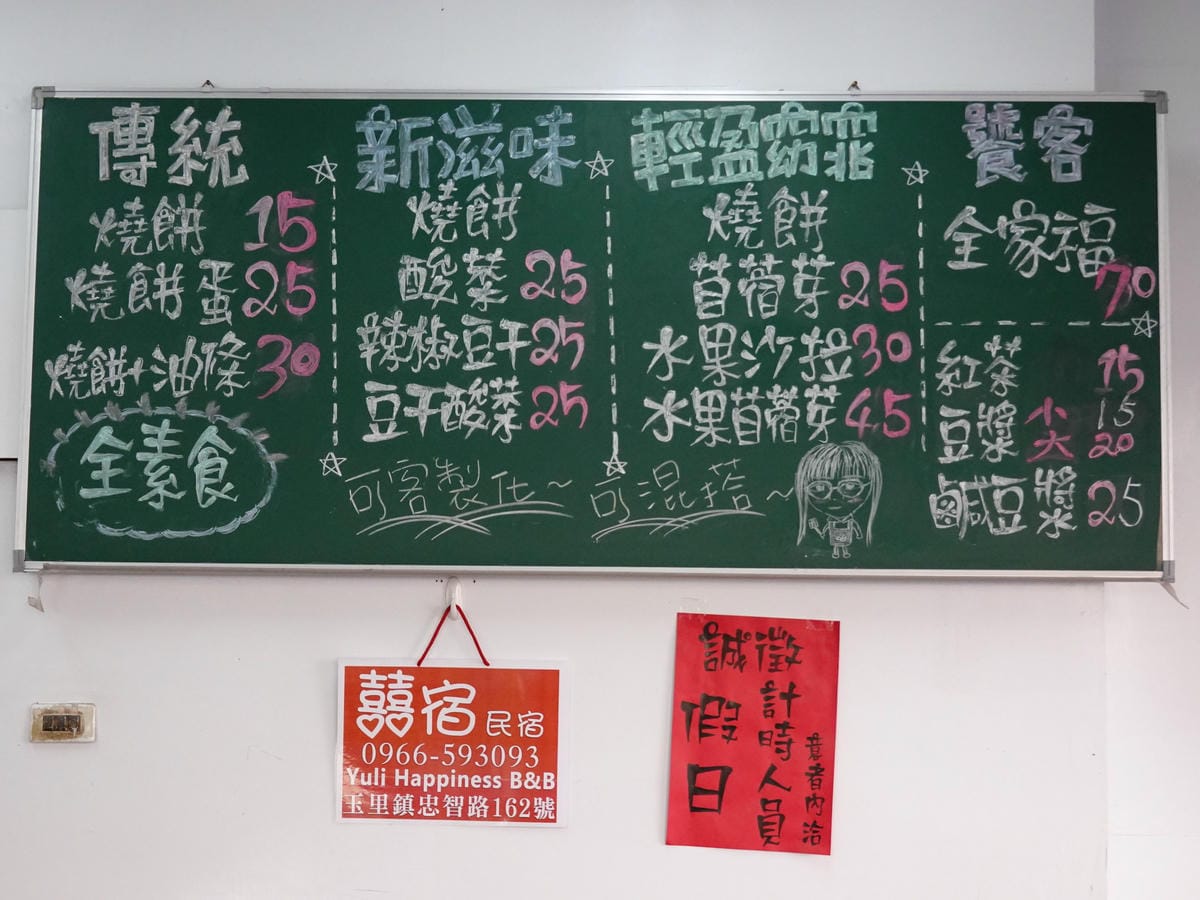 傳統
燒餅 15
燒餅蛋 25
燒餅+油條 30
全素食
新滋味
燒餅
酸菜 25
辣椒豆干 25
豆干酸菜 25
可客製化~
輕盈窈窕
燒餅
苜蓿芽 25
水果沙拉 30
水果苜蓿芽 45
可混搭~
饕客
全家福 70
紅茶 15
豆漿 小 15
大 20
鹹豆漿 25
囍宿民宿
0966-593093
Yuli Happiness B&B
玉里鎮忠智路162號
誠徵
假日
計時人員
意者內洽